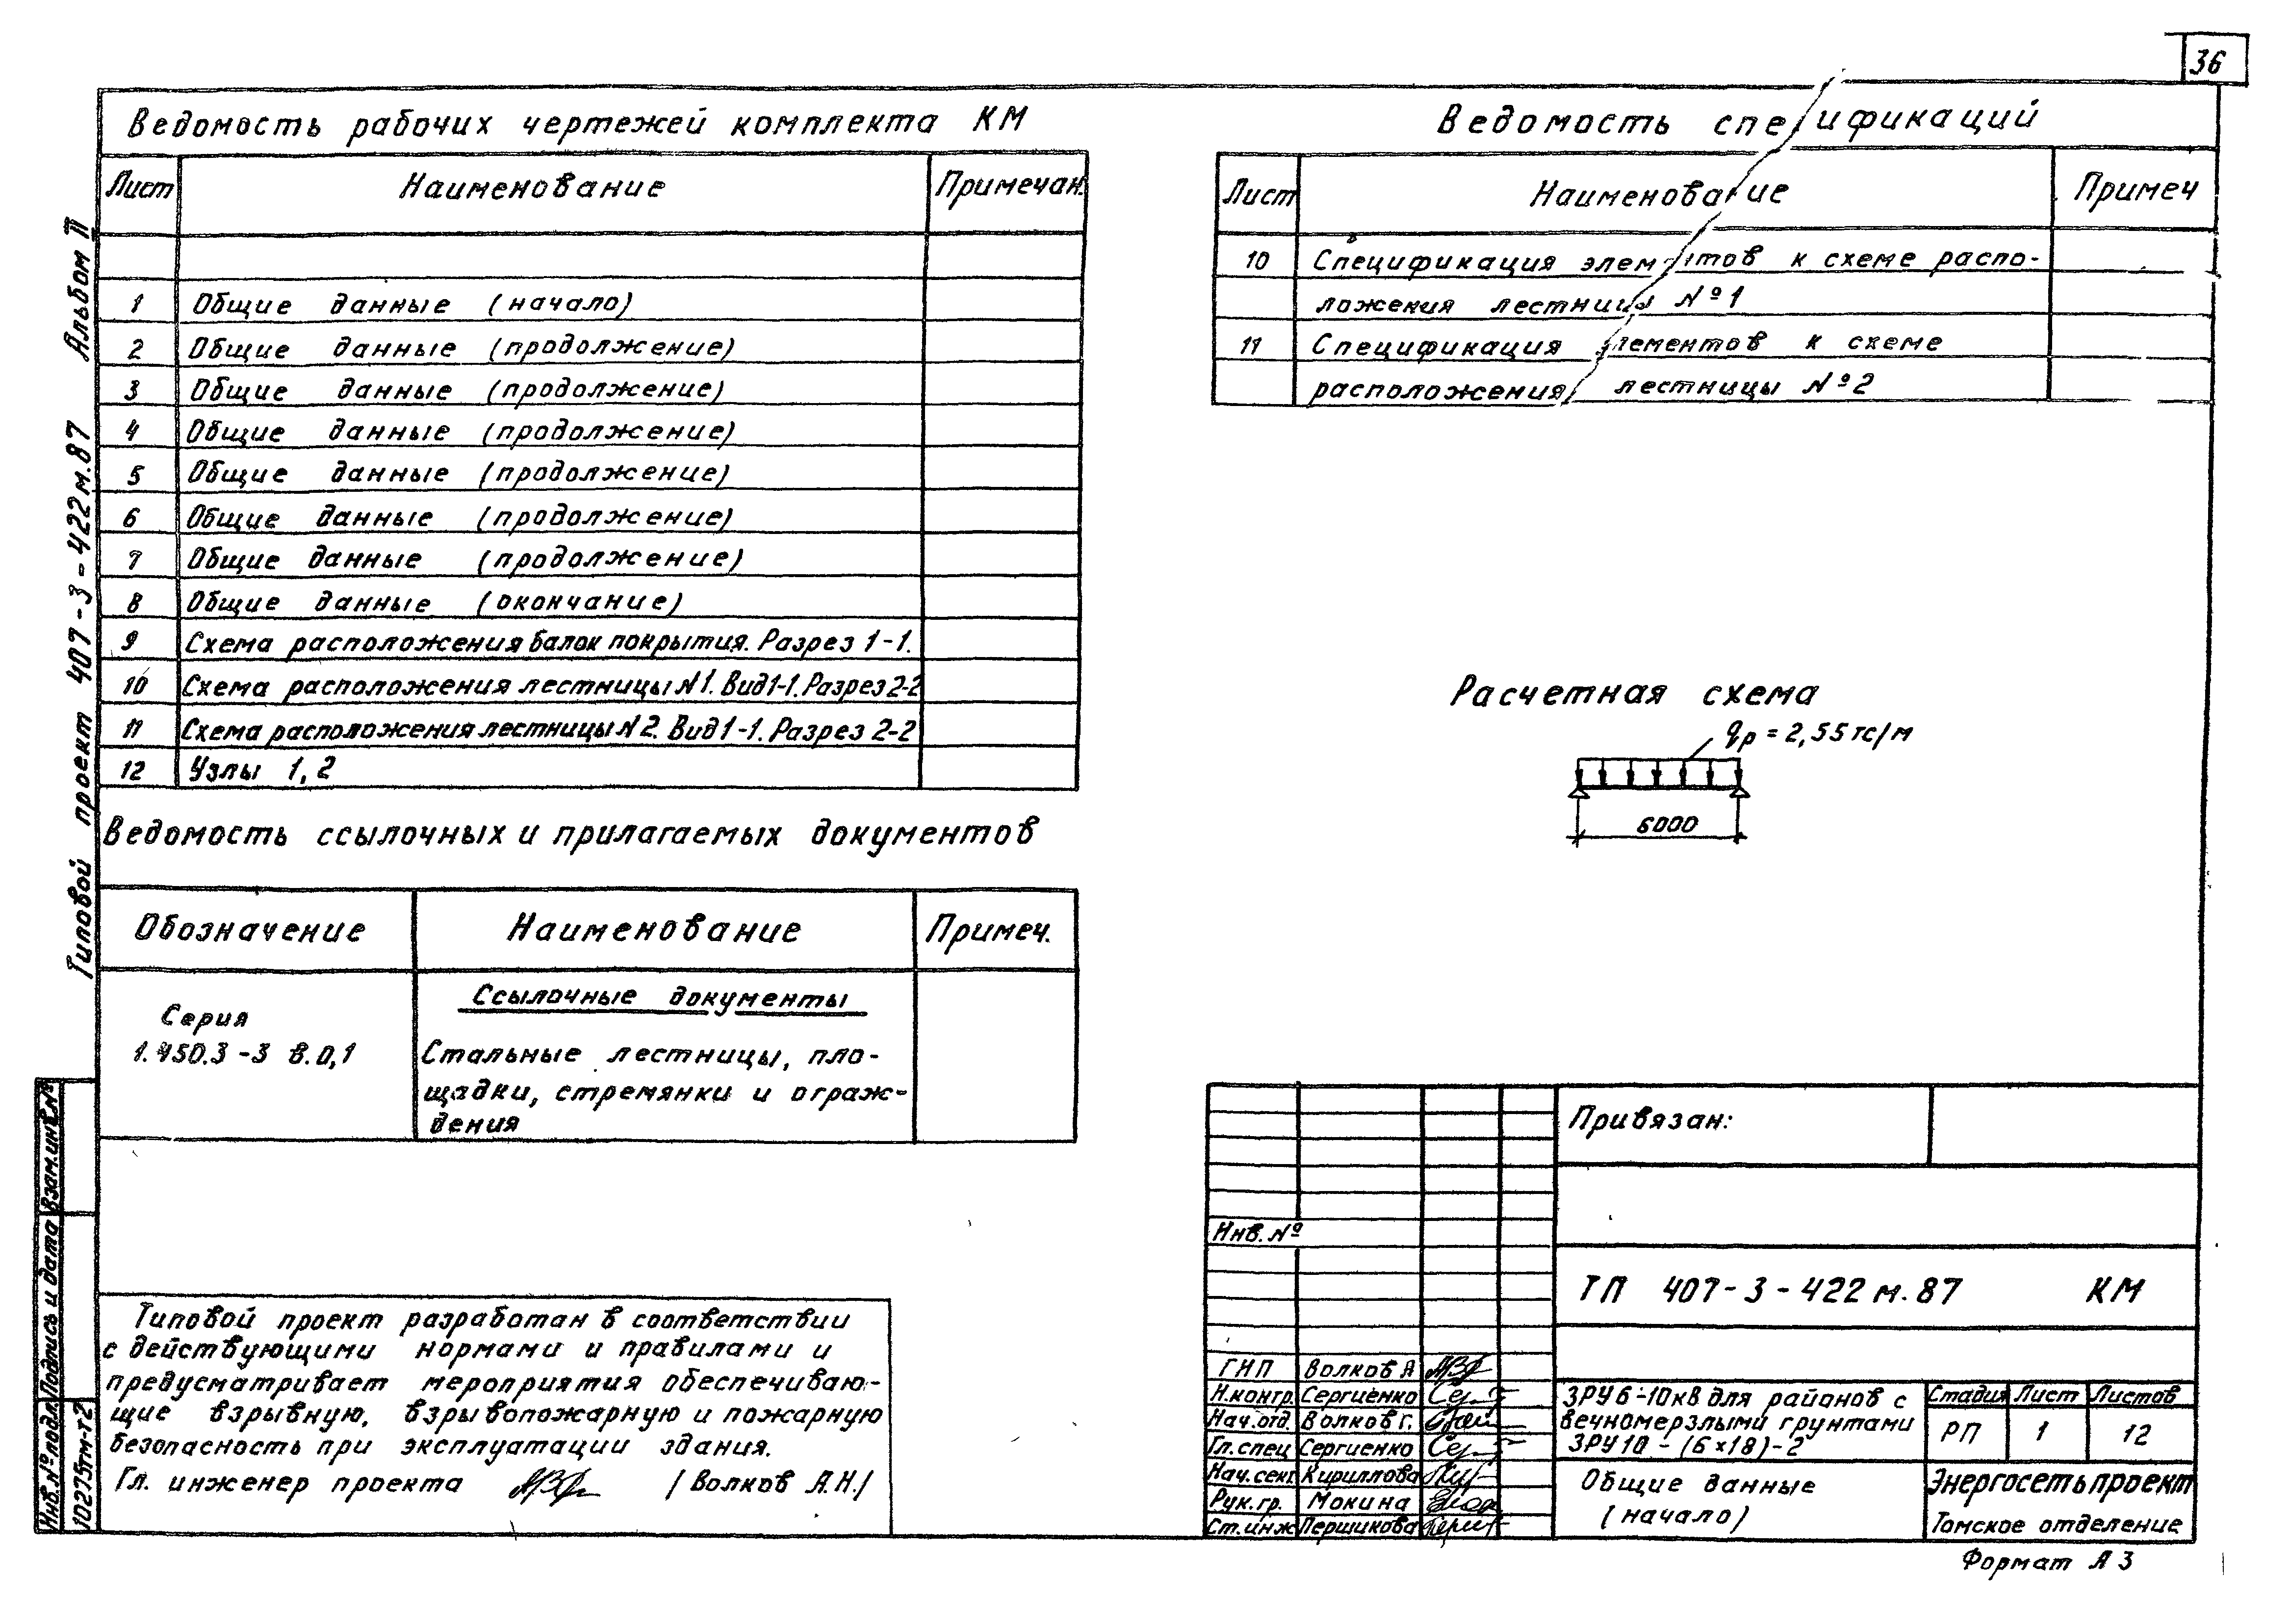 36
Ведомость рабочих чертежей комплекта КМ
Лист Наименование Примечан.
1 Общие данные (начало)
2 Общие данные (продолжение)
3 Общие данные (продолжение)
4 Общие данные (продолжение)
5 Общие данные (продолжение)
6 Общие данные (продолжение)
7 Общие данные (продолжение)
8 Общие данные (окончание)
9 Схема расположения балок покрытия. Разрез 1-1.
10 Схема расположения лестницы N1. Вид 1-1. Разрез 2-2
11 Схема расположения лестницы N2. Вид 1-1. Разрез 2-2
12 Узлы 1, 2
Ведомость ссылочных и прилагаемых документов
Обозначение Наименование Примеч.
Ссылочные документы
Серия
1.450.3-3 в.0,1 Стальные лестницы, пло-
щадки, стремянки и ограж-
дения
Типовой проект разработан в соответствии
с действующими нормами и правилами и
предусматривает мероприятия обеспечиваю-
щие взрывную, взрывопожарную и пожарную
безопасность при эксплуатации здания.
Гл. инженер проекта /Волков А.Н./
Ведомость спецификаций
Лист Наименование Примеч
10 Спецификация элементов к схеме распо-
ложения лестницы №1
11 Спецификация элементов к схеме
расположения лестницы №2
Расчетная схема
qр = 2,55 тс/м
6000
Привязан:
Инв. №
ТП 407-3-422 м.87 КМ
ГИП Волков А
Н.контр. Сергиенко
Нач.отд. Волков Г.
Гл.спец Сергиенко
Нач.сект Кириллова
Рук.гр. Мокина
Ст.инж Першикова
ЗРУ 6-10кВ для районов с
вечномерзлыми грунтами
ЗРУ 10-(6×18)-2
Стадия Лист Листов
РП 1 12
Общие данные
(начало)
Энергосетьпроект
Томское отделение
Формат А3
Типовой проект 407-3-422м.87 Альбом II
Взам.инв.№
Подпись и дата
Инв.№ подл.
10275тм-т2